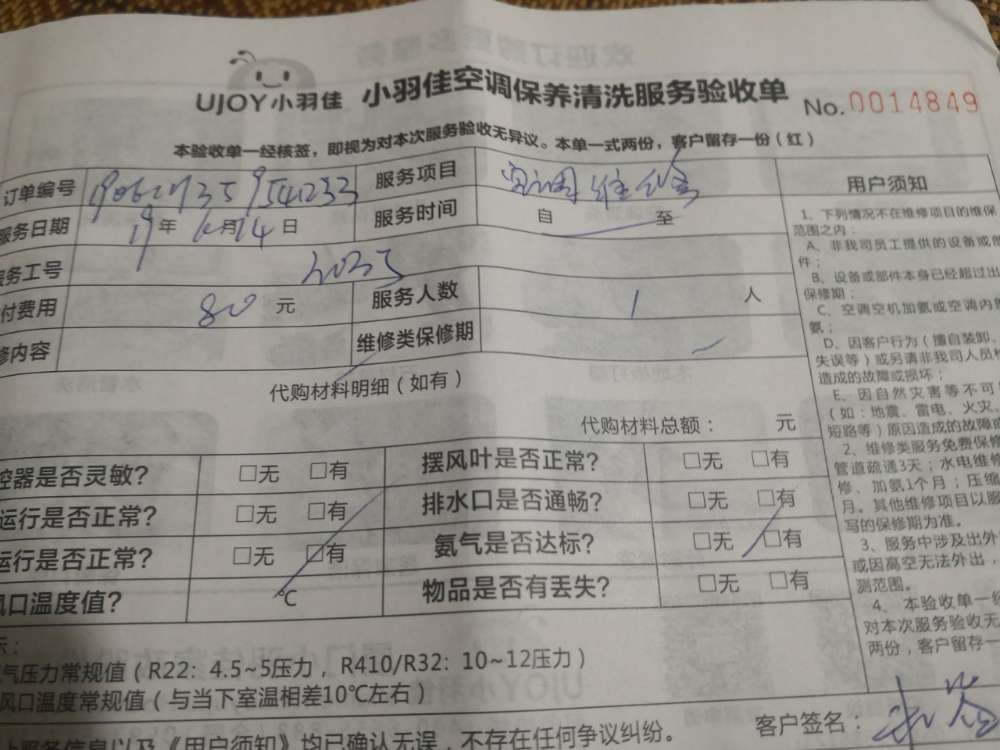 UJOY小羽佳 小羽佳空调保养清洗服务验收单 No.0014849
本验收单一经核签，即视为对本次服务验收无异议。本单一式两份，客户留存一份（红）
订单编号 服务项目 空调维修 用户须知
服务日期 19年 6月14日 服务时间 自 至
服务工号
付费用 80 元 服务人数 1 人
修内容 维修类保修期
代购材料明细（如有）
代购材料总额： 元
控器是否灵敏？ □无 □有 摆风叶是否正常？ □无 □有
运行是否正常？ □无 □有 排水口是否通畅？ □无 □有
运行是否正常？ □无 □有 氨气是否达标？ □无 □有
风口温度值？ ℃ 物品是否有丢失？ □无 □有
示：
气压力常规值（R22：4.5~5压力，R410/R32：10~12压力）
风口温度常规值（与当下室温相差10℃左右）
服务信息以及《用户须知》均已确认无误，不存在任何争议纠纷。
客户签名：
1、下列情况不在维修项目的维保
范围之内：
A、非我司员工提供的设备或部
件；
B、设备或部件本身已经超过出
保修期；
C、空调空机加氨或空调内
氨；
D、因客户行为（擅自装卸、
失误等）或另请非我司人员
造成的故障或损坏；
E、因自然灾害等不可
（如：地震、雷电、火灾、
短路等）原因造成的故障或
2、维修类服务免费保修
管道疏通3天；水电维修
修、加氨1个月；压缩
月。其他维修项目以服
写的保修期为准。
3、服务中涉及出外
或因高空无法外出，
测范围。
4、本验收单一经
对本次服务验收无
两份，客户留存一